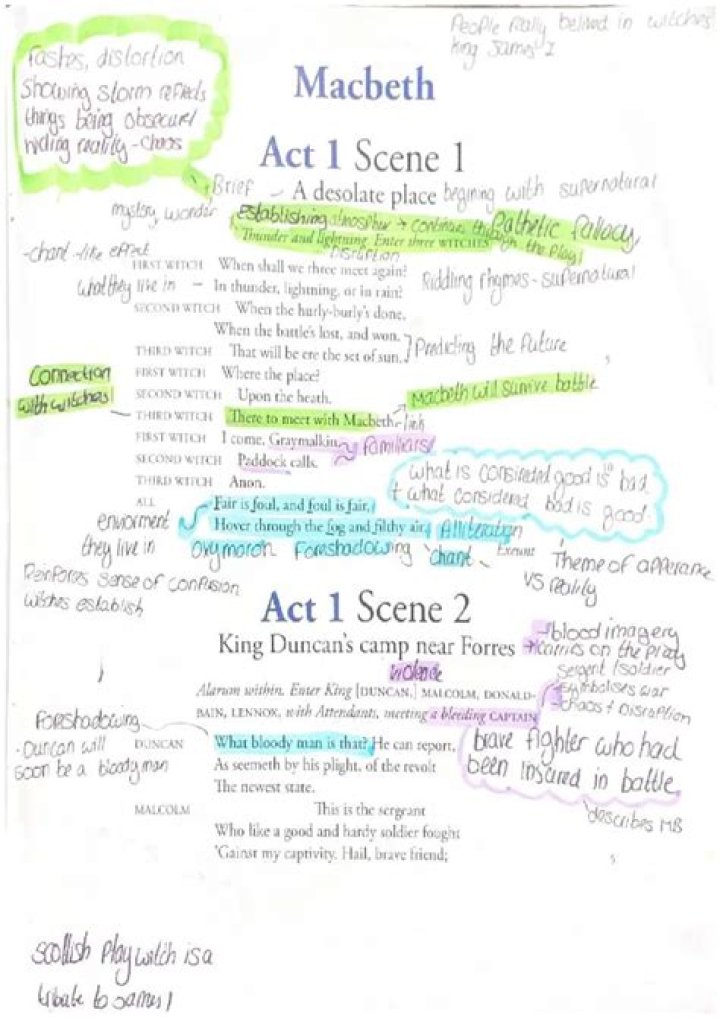 People really belived in witches
King James I
distortion
Showing storm reflects
things being obsecure/
hiding reality - chaos
Macbeth
Act 1 Scene 1
Brief - A desolate place begining with supernatural
mystery, wonder
establishing atmospher → continues Pathetic fallacy
Thunder and lightning. Enter three WITCHES the play!
Disruption
-chant-like effect
FIRST WITCH When shall we three meet again?
what they like in - In thunder, lightning, or in rain? Riddling rhymes - supernatural
SECOND WITCH When the hurly-burly's done,
When the battle's lost, and won.
THIRD WITCH That will be ere the set of sun. Predicting the future
Connection
with witches!
FIRST WITCH Where the place?
SECOND WITCH Upon the heath.
Macbeth will survive battle
THIRD WITCH There to meet with Macbeth.
FIRST WITCH I come, Graymalkin. familiars!
SECOND WITCH Paddock calls.
THIRD WITCH Anon.
what is considered good is bad
+ what considered bad is good
ALL Fair is foul, and foul is fair,
Hover through the fog and filthy air. Alliteration
enviorment
they live in
oxymoron Foreshadowing 'chant' Exeunt
Theme of apperance
vs reality
Reinforces sense of confusion
witches establish
Act 1 Scene 2
King Duncan's camp near Forres
blood imagery
carries on the play
sergent/soldier
symbolises war
-chaos + Disruption
violence
Alarum within. Enter King [DUNCAN,] MALCOLM, DONALD-
BAIN, LENNOX, with Attendants, meeting a bleeding CAPTAIN
Foreshadowing
-Duncan will
soon be a bloody man
DUNCAN What bloody man is that? He can report,
As seemeth by his plight, of the revolt
The newest state.
brave fighter who had
been insured in battle
describes MB
MALCOLM This is the sergeant
Who like a good and hardy soldier fought
'Gainst my captivity. Hail, brave friend;
scollish Play witch is a
tribute to James I